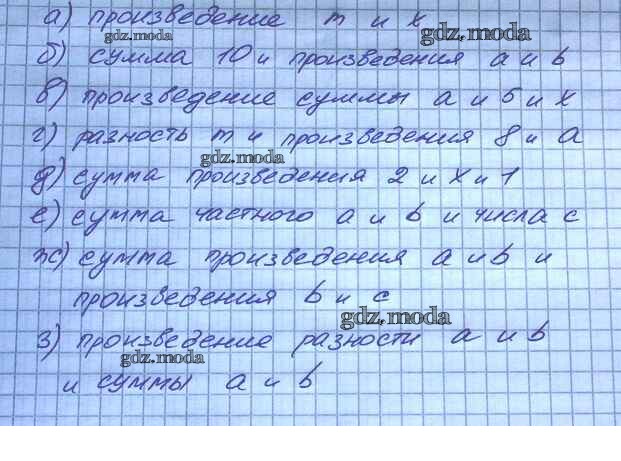 а) произведение m и k
gdz.moda gdz.moda
б) сумма 10 и произведения a и b
в) произведение суммы a и 5 и x
г) разность m и произведения 8 и a
gdz.moda
д) сумма произведения 2 и x и 1
е) сумма частного a и b и числа c
ж) сумма произведения a и b и
произведения b и c
gdz.moda
з) произведение разности a и b
gdz.moda
и суммы a и b